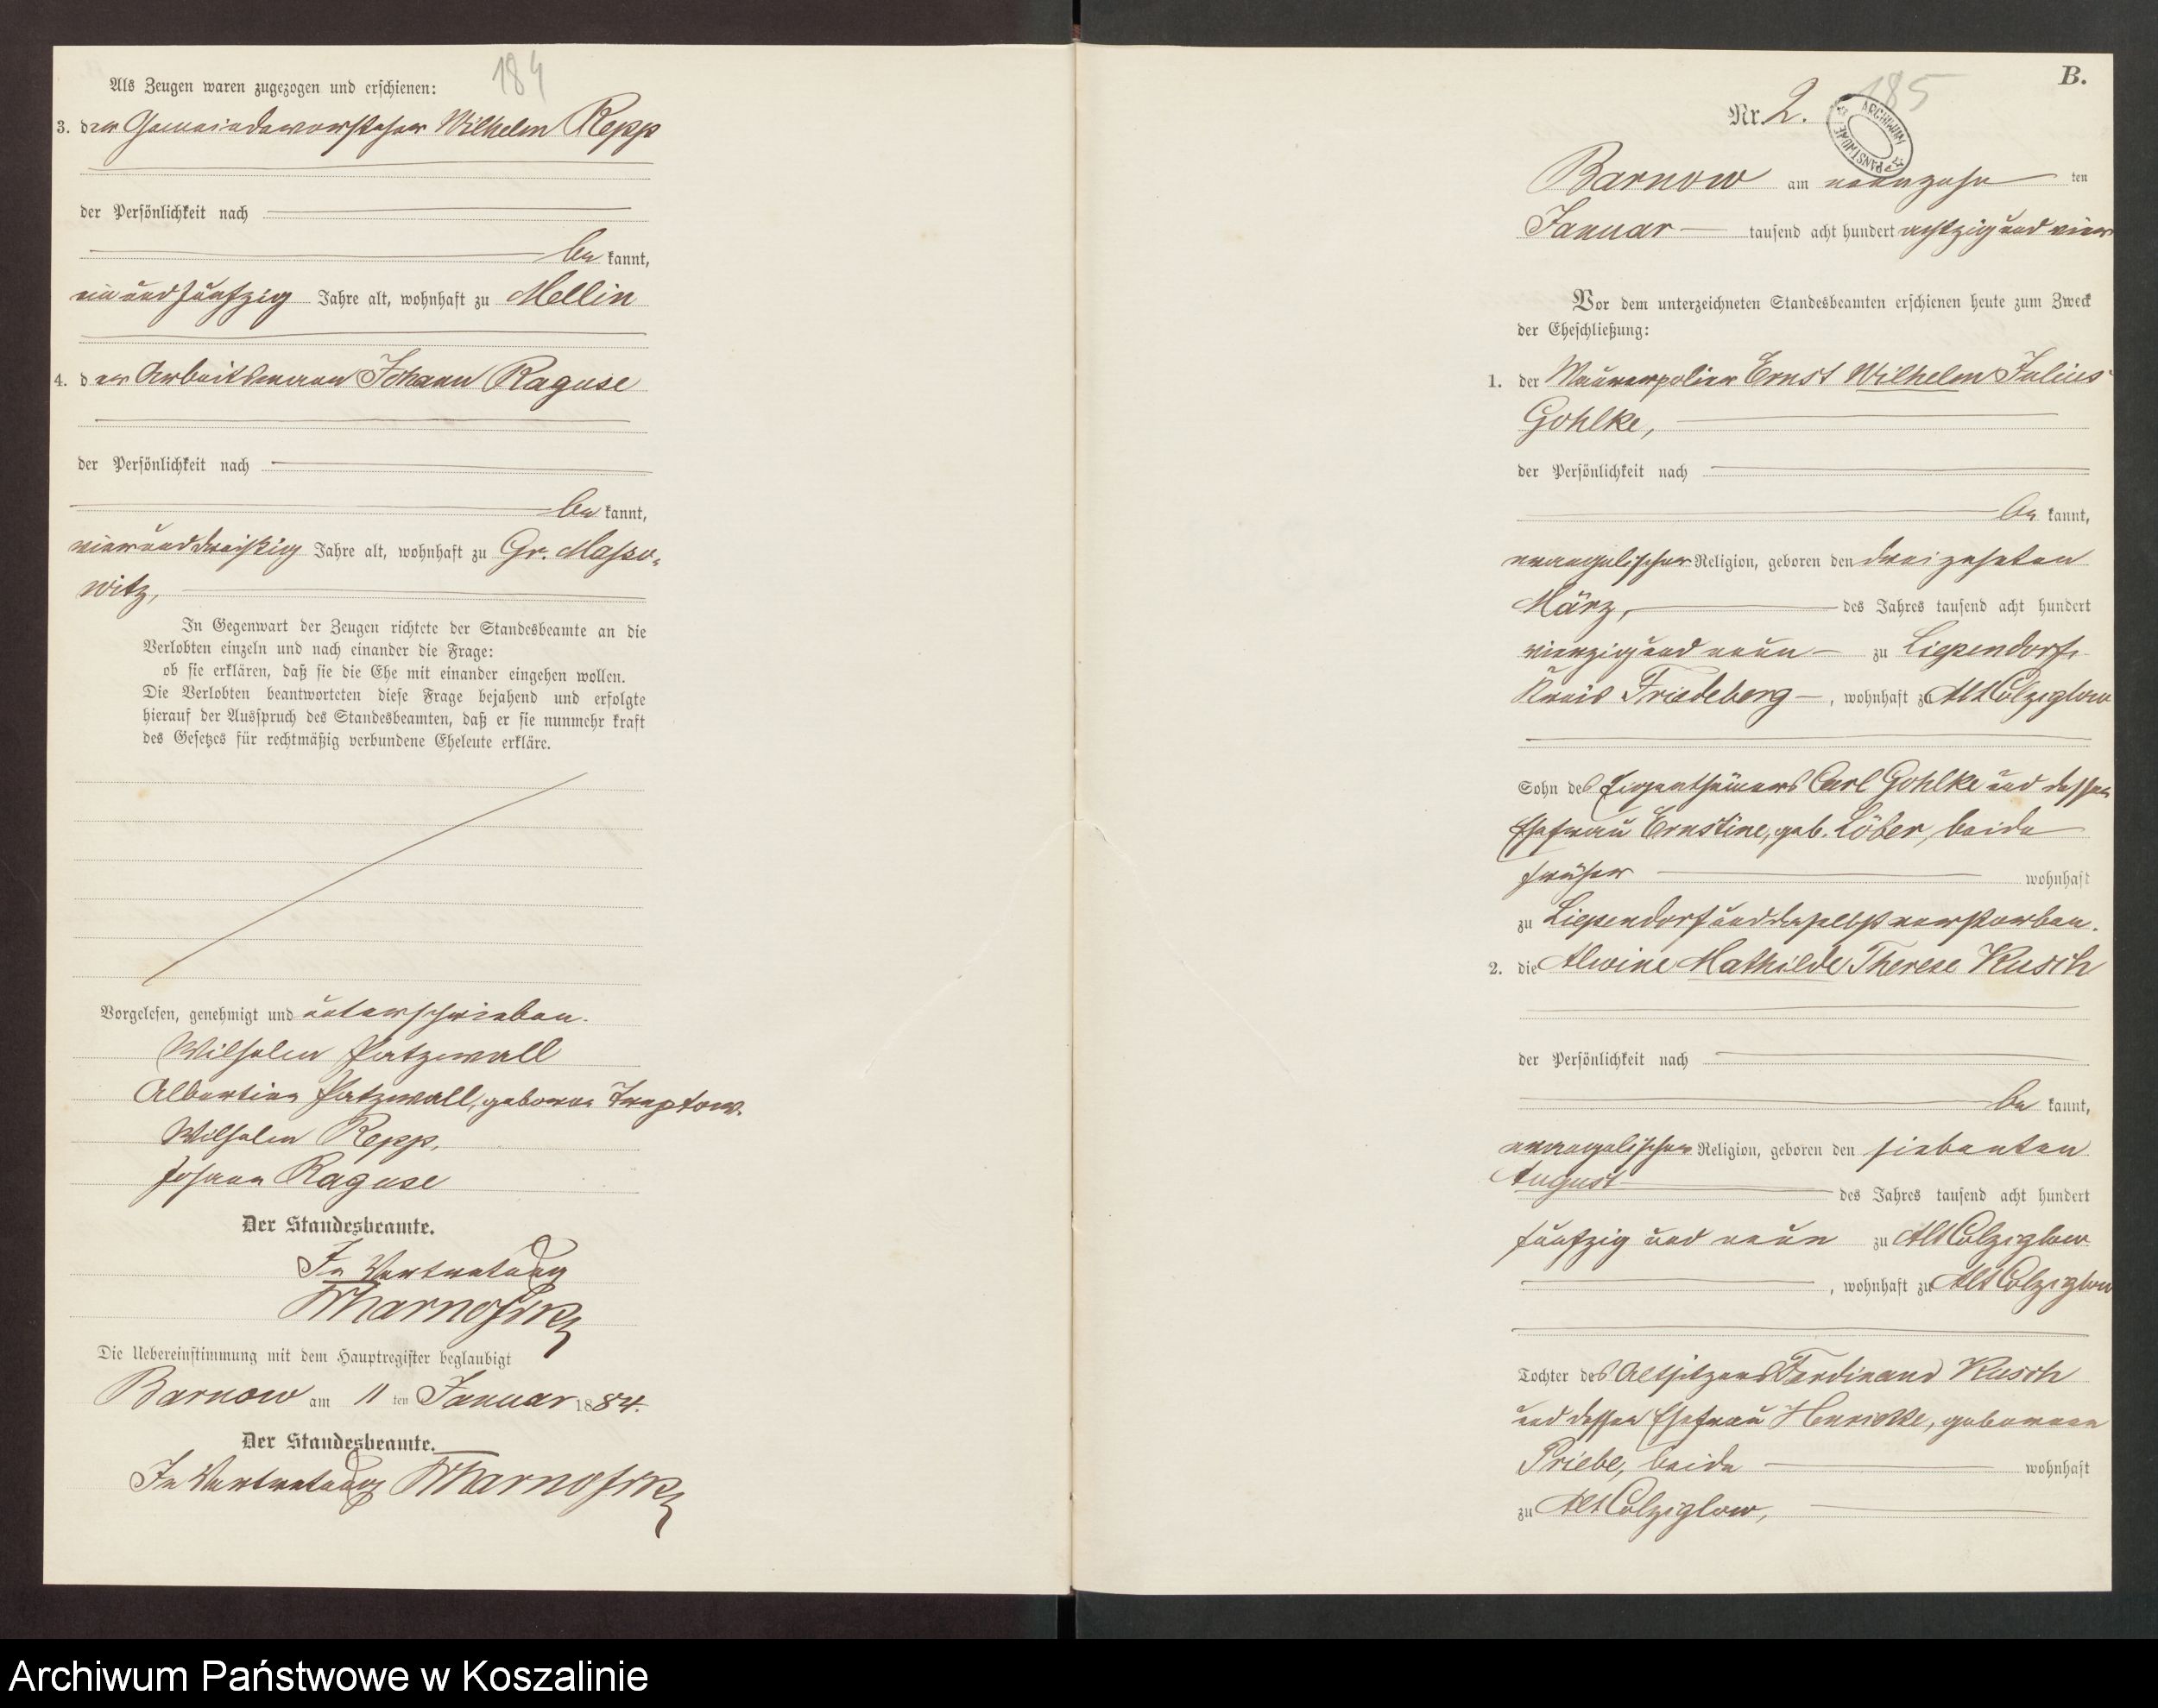 184
Als Zeugen waren zugezogen und erschienen:
3. der Gemeindevorsteher Wilhelm Repp
der Persönlichkeit nach
be kannt,
ein und fünfzig Jahre alt, wohnhaft zu Mellin
4. der Arbeitsmann Johann Raguse
der Persönlichkeit nach
be kannt,
vierunddreißig Jahre alt, wohnhaft zu Gr. Masso-
witz,
In Gegenwart der Zeugen richtete der Standesbeamte an die
Verlobten einzeln und nach einander die Frage:
ob sie erklären, daß sie die Ehe mit einander eingehen wollen.
Die Verlobten beantworteten diese Frage bejahend und erfolgte
hierauf der Ausspruch des Standesbeamten, daß er sie nunmehr kraft
des Gesetzes für rechtmäßig verbundene Eheleute erkläre.
Vorgelesen, genehmigt und unterschrieben.
Wilhelm Patzwall
Albertine Patzwall, geborne Treptow.
Wilhelm Repp,
Johann Raguse
Der Standesbeamte.
In Vertretung
Die Uebereinstimmung mit dem Hauptregister beglaubigt
Barnow am 11 ten Januar 1884.
Der Standesbeamte.
In Vertretung
B.
185
Nr. 2.
ARCHIWUM PAŃSTWOWE
Barnow am neunzehn ten
Januar tausend acht hundert achtzig und vier
Vor dem unterzeichneten Standesbeamten erschienen heute zum Zweck
der Eheschließung:
1. der Maurerpolier Ernst Wilhelm Julius
Gohlke,
der Persönlichkeit nach
be kannt,
evangelischer Religion, geboren den dreizehnten
März, des Jahres tausend acht hundert
vierzig und neun zu Liependorf,
Kreis Friedeberg, wohnhaft zu Alt Colziglow
Sohn des Eigenthümers Carl Gohlke und dessen
Ehefrau Ernstine, geb. Löber, beide
früher wohnhaft
zu Liependorf und daselbst verstorben.
2. die Alwine Mathilde Therese Kusch
der Persönlichkeit nach
be kannt,
evangelischer Religion, geboren den siebenten
August des Jahres tausend acht hundert
fünfzig und neun zu Alt Colziglow
, wohnhaft zu Alt Colziglow
Tochter des Altsitzers Ferdinand Kusch
und dessen Ehefrau Henriette, geborenen
Priebe, beide wohnhaft
zu Alt Colziglow,
Archiwum Państwowe w Koszalinie